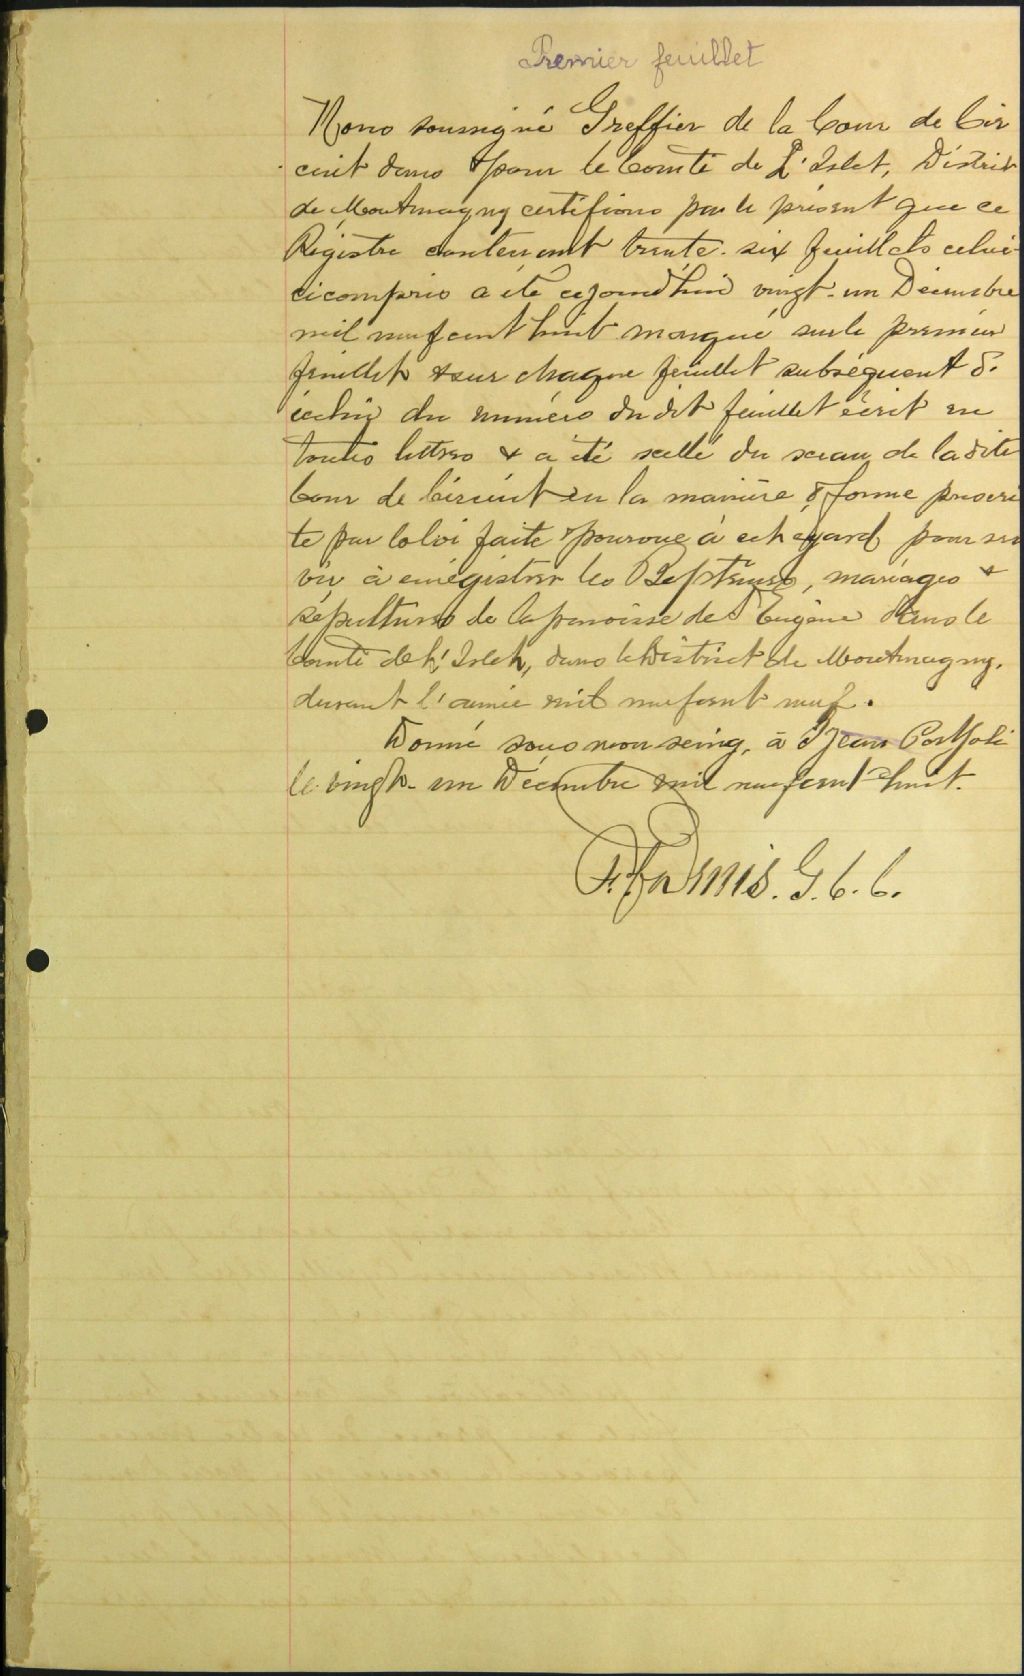 Premier feuillet
Nous soussigné Greffier de la Cour de Cir
cuit dans & pour le Comté de L'Islet, District
de Montmagny certifions par le présent que ce
Régistre contenant trente-six feuillets celui
ci compris a été cejourd'hui vingt-un Décembre
mil neuf cent huit marqué sur le premier
feuillet & sur chaque feuillet subséquent &
du numéro du dit feuillet écrit en
toutes lettres & a été scellé du sceau de la dite
Cour de Circuit en la manière & forme prescri
te par la loi faite & pourvue à cet égard pour ser
vir à enrégistrer les Baptêmes, mariages &
sépultures de la paroisse de St Eugène dans le
Comté de L'Islet, dans le District de Montmagny,
durant l'année mil neuf cent neuf.
Donné sous mon seing, à St Jean Port Joli
le vingt-un Décembre mil neuf cent huit.
G. C. C.